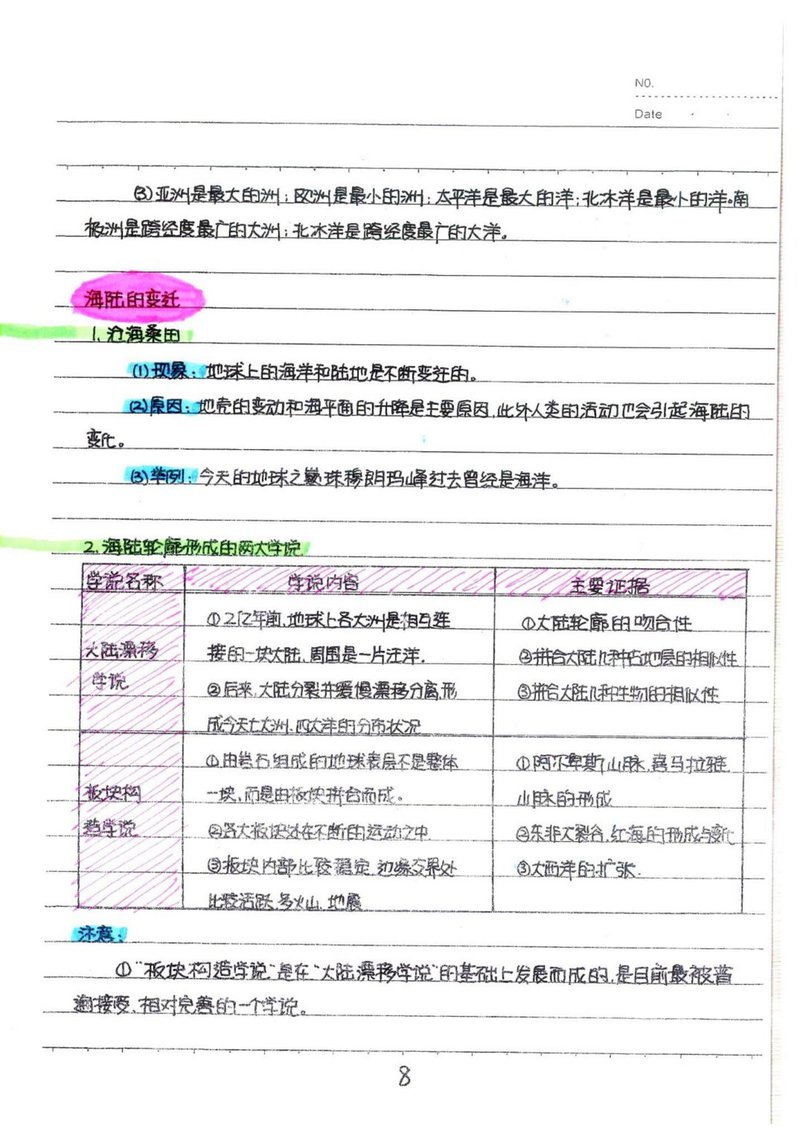 NO.
Date
(3)亚洲是最大的洲;欧洲是最小的洲;太平洋是最大的洋;北冰洋是最小的洋。南
极洲是跨经度最广的大洲;北冰洋是跨经度最广的大洋。
海陆的变迁
1.沧海桑田
(1)现象:地球上的海洋和陆地是不断变迁的。
(2)原因:地壳的变动和海平面的升降是主要原因,此外人类的活动也会引起海陆的
变化。
(3)举例:今天的地球之巅珠穆朗玛峰过去曾经是海洋。
2.海陆轮廓形成的两大学说
学说名称 学说内容 主要证据
①2亿年前,地球上各大洲是相互连 ①大陆轮廓的吻合性
大陆漂移 接的一块大陆,周围是一片汪洋. ②拼合大陆几种古地层的相似性
学说 ②后来,大陆分裂并缓慢漂移分离,形 ③拼合大陆几种生物的相似性
成今天七大洲、四大洋的分布状况
①由岩石组成的地球表层不是整体 ①阿尔卑斯山脉,喜马拉雅
板块构 一块,而是由板块拼合而成。 山脉的形成
造学说 ②各大板块处在不断的运动之中 ②东非大裂谷,红海的形成与变化
③板块内部比较稳定,边缘交界处 ③大西洋的扩张.
比较活跃,多火山、地震
注意:
①"板块构造学说"是在"大陆漂移学说"的基础上发展而成的,是目前最被普
遍接受,相对完善的一个学说。
8